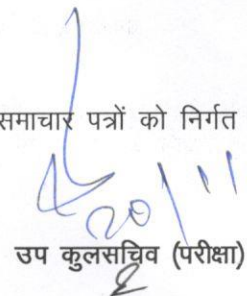 समाचार पत्रों को निर्गत
20/11
उप कुलसचिव (परीक्षा)